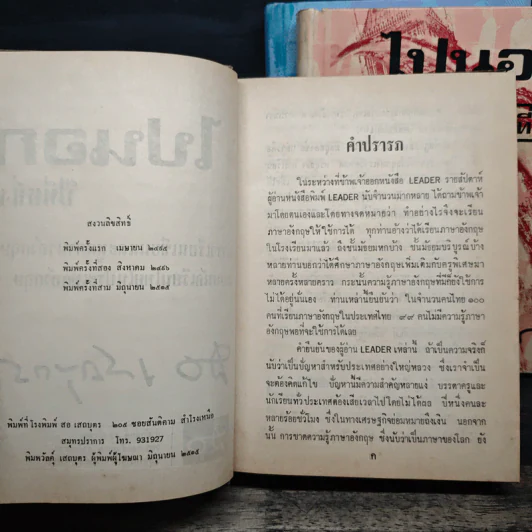 ไปนอก
สงวนลิขสิทธิ์
พิมพ์ครั้งแรก เมษายน
พิมพ์ครั้งที่สอง สิงหาคม
พิมพ์ครั้งที่สาม มิถุนายน ๒๕๑๕
พิมพ์ที่โรงพิมพ์ สอ เสถบุตร ๒๐๕ ซอยสันติคาม สำโรงเหนือ
สมุทรปราการ โทร. 931927
พิมพวัลคุ์ เสถบุตร ผู้พิมพ์ผู้โฆษณา มิถุนายน ๒๕๑๕
คำปรารภ
ในระหว่างที่ข้าพเจ้าออกหนังสือ LEADER รายสัปดาห์
ผู้อ่านหนังสือพิมพ์ LEADER นับจำนวนมากหลาย ได้ถามข้าพเจ้า
มาโดยตนเองและโดยทางจดหมายว่า ทำอย่างไรจึงจะเรียน
ภาษาอังกฤษ ให้ใช้การได้ ทุกท่านอ้างว่าได้เรียนภาษาอังกฤษ
ในโรงเรียนมาแล้ว ถึงชั้นมัธยมหกบ้าง ชั้นมัธยมบริบูรณ์บ้าง
หลายท่านบอกว่าได้ศึกษาภาษาอังกฤษเพิ่มเติมกับครูพิเศษมา
หลายครั้งหลายคราว กระนั้นความรู้ภาษาอังกฤษที่มีก็ยังใช้การ
ไม่ได้อยู่นั่นเอง ท่านเหล่านี้ยืนยันว่า ในจำนวนคนไทย ๑๐๐
คนที่เรียนภาษาอังกฤษในประเทศไทย ๙๙ คนไม่มีความรู้ภาษา
อังกฤษพอที่จะใช้การได้เลย
คำยืนยันของผู้อ่าน LEADER เหล่านี้ ถ้าเป็นความจริงก็
นับว่าเป็นปัญหาสำหรับประเทศอย่างใหญ่หลวง ซึ่งเราจำเป็น
จะต้องคิดแก้ไข ปัญหานี้มีความสำคัญหลายแง่ บรรดาครูและ
นักเรียนทั่วประเทศต้องเสียเวลาไปโดยไม่ได้ผล ปีหนึ่งคนละ
หลายร้อยชั่วโมง ซึ่งในทางเศรษฐกิจย่อมหมายถึงเงิน นอกจาก
นั้น การขาดความรู้ภาษาอังกฤษ ซึ่งนับว่าเป็นภาษาของโลก ยัง
ก